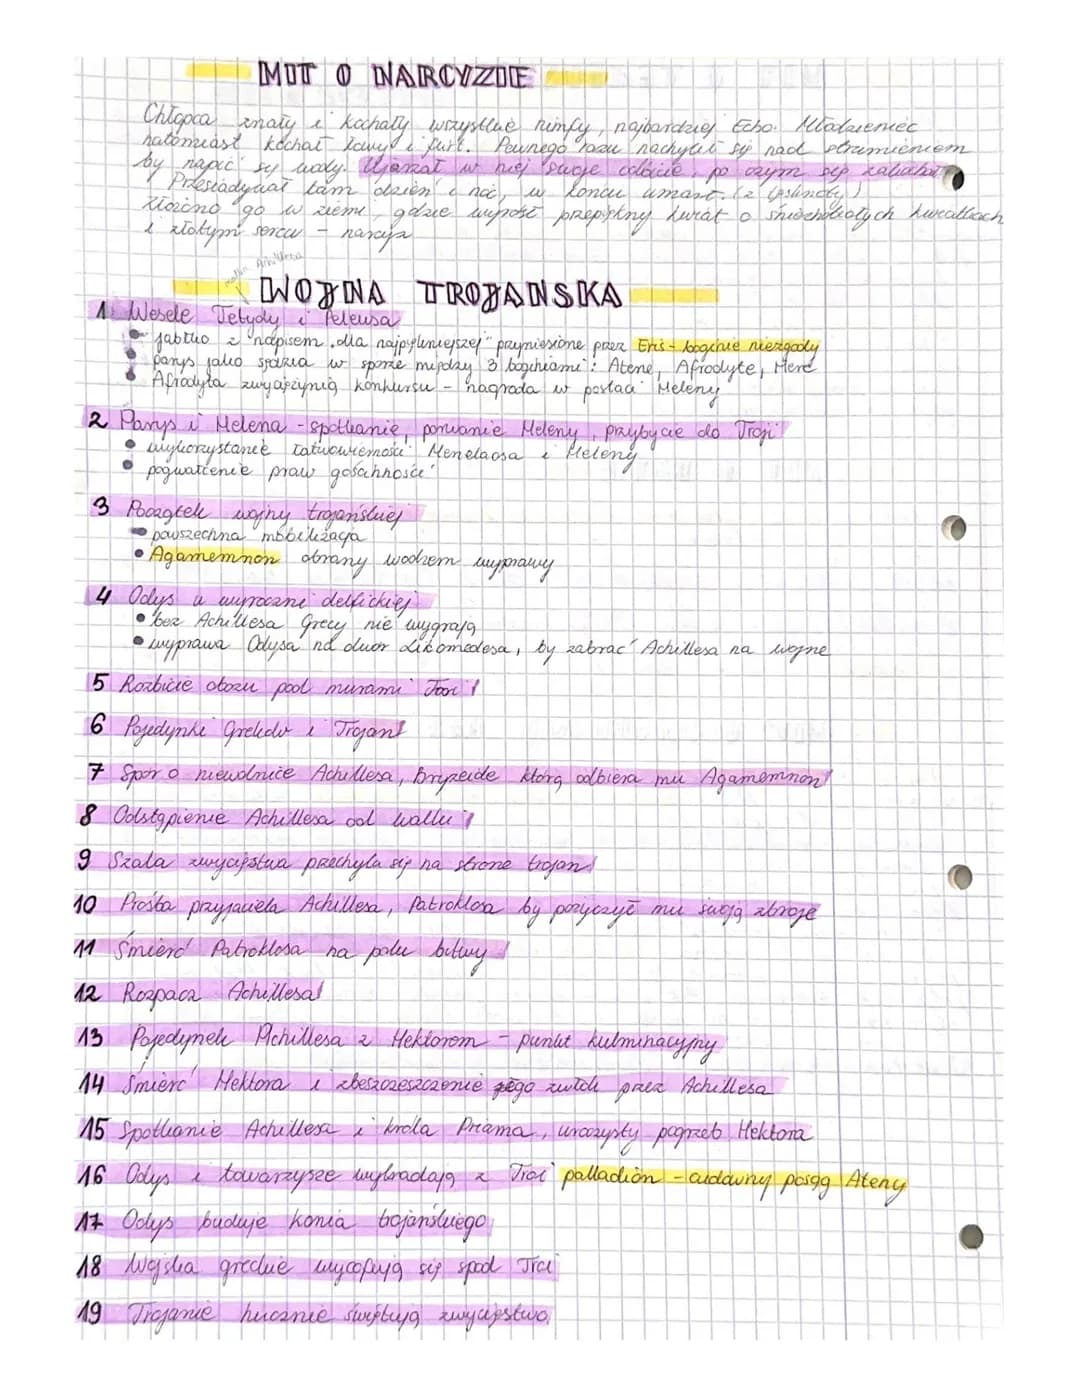 MIT O NARCYZIE
Chłopca znały i kochały wszystkie nimfy, najbardziej Echo. Młodzieniec
natomiast kochał łowy i flirt. Pewnego razu nachylił się nad strumieniem
by napić się wody. Ujrzał w niej swoje odbicie, po czym się zakochał
Przesiadywał tam dzień i noc, w końcu umarł. (z tęsknoty)
Złożono go w ziemi, gdzie wyrósł przepiękny kwiat o śnieżnobiałych kwiatkach
i złotym sercu - narcyz
matka Achillesa
WOJNA TROJANSKA
1 Wesele Tetydy i Peleusa
• jabłko z napisem "dla najpiękniejszej" przyniesione przez Eris - boginię niezgody
• parys jako sędzia w sporze między 3 boginiami: Atenę, Afrodytę, Herę
• Afrodyta zwyciężynią konkursu - nagroda w postaci Heleny
2 Parys i Helena - spotkanie, porwanie Heleny, przybycie do Troji
• wykorzystanie łatwowierności Menelaosa i Heleny
• pogwałcenie praw gościnności
3 Początek wojny trojańskiej
• powszechna mobilizacja
• Agamemnon obrany wodzem wyprawy
4 Odys u wyroczni delfickiej
• bez Achillesa Grecy nie wygrają
• wyprawa Odysa na dwór Likomedesa, by zabrać Achillesa na wojnę
5 Rozbicie obozu pod murami Troi
6 Pojedynki Greków i Trojan
7 Spór o niewolnice Achillesa, Bryzeidę którą odbiera mu Agamemnon
8 Odstąpienie Achillesa od walki
9 Szala zwycięstwa przechyla się na stronę trojan
10 Prośba przyjaciela Achillesa, Patroklosa by pożyczył mu swoją zbroję
11 Śmierć Patroklosa na polu bitwy
12 Rozpacz Achillesa
13 Pojedynek Achillesa z Hektorem - punkt kulminacyjny
14 Śmierć Hektora i zbeszczeszczenie jego zwłok przez Achillesa
15 Spotkanie Achillesa i króla Priama, uroczysty pogrzeb Hektora
16 Odys i towarzysze wykradają z Troi palladion - cudowny posąg Ateny
17 Odys buduje konia trojańskiego
18 Wojska greckie wycofują się spod Troi
19 Trojanie hucznie świętują zwycięstwo